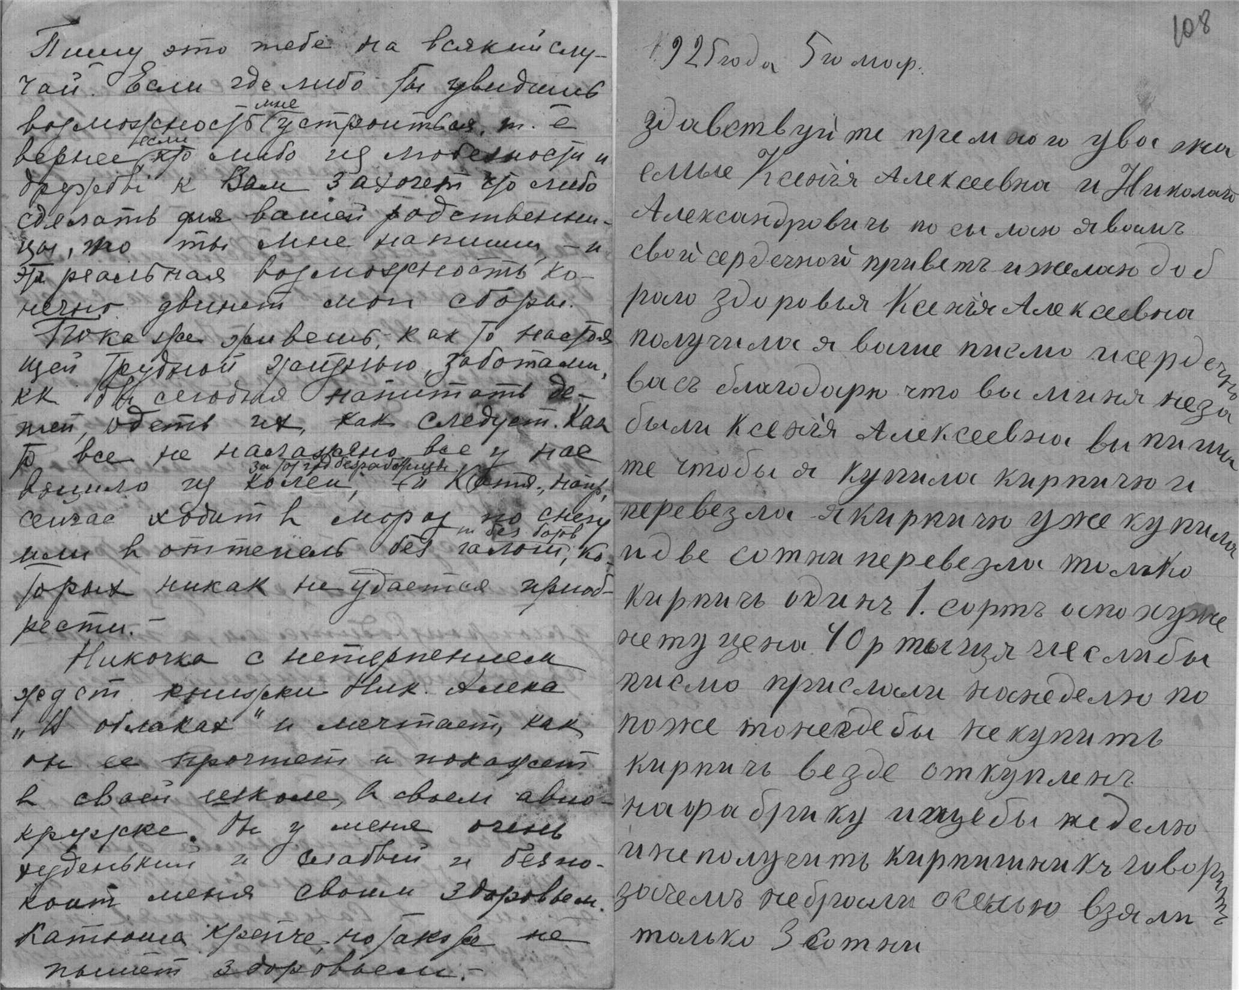 Пишу это тебе на всякий слу-
чай. Если где либо ты увидишь
возможность мне устроиться, т. е
вернее если кто либо из любезности и
дружбы к Вам захочет что либо
сделать для вашей родственни-
цы, то ты мне напиши, – и
эта реальная возможность ко-
нечно двинет мои сборы.
Пока же живешь как то настоя
щей трудной жизнью, заботами,
кк бы сегодня напитать де-
тей, одеть их, как следует. Как
то все не налажено, все у нас
вышло из колеи, за тот год безработицы. Катя, напр,
сейчас ходит в мороз по снегу
или в оттепель без галош, ко-
торых никак не удается приоб-
рести. –
Никочка с нетерпением
ждет книжки Ник. Алекс
„В облаках" и мечтает, как
он ее прочтет и покажет
в своей школе, в своем авио-
кружке. Он у меня очень
худенький и слабый и беспо-
коит меня своим здоровьем.
Катюша крепче, но также не
пышет здоровьем. –
108
1925 года 5го мар.
здавствуйте премного уважа
емые Ксенiя Алексеевна и Николай
Александровичь посылаю я вамъ
свой сердечной приветъ и желаю доб
рого здоровья Ксенiя Алексеевна
получила я ваше писмо и сердечно
васъ благодарю что вы миня неза
были Ксенiя Алексеевна вы пиши
те чтобы я купила кирпичю и
перевезла я кирпичю уже купила
и две сотни перевезла толко
кирпичь одинъ 1. сортъ
нету цена 40 р тыща и еслибы
писмо прислали нанеделю по
поже то негдебы некупить
кирпичь везде откупленъ
нафабрику ищебы неделю
и неполучить кирпишникъ говоритъ
зачемъ небрали осенью взяли
только 3 сотни